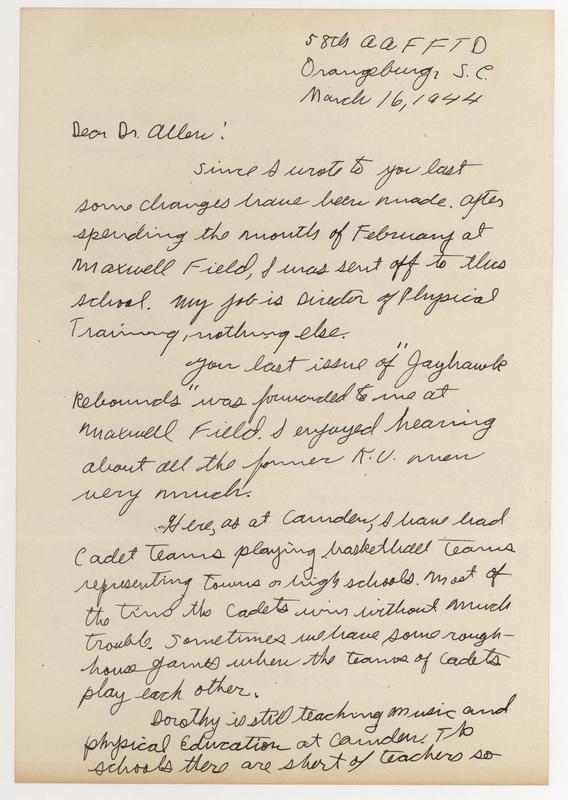 58th AAFFTD
Orangeburg, S.C.
March 16, 1944
Dear Dr. Allen:
Since I wrote to you last
some changes have been made. After
spending the month of February at
Maxwell Field, I was sent off to this
school. My job is Director of Physical
Training, nothing else.
Your last issue of "Jayhawk
Rebounds" was forwarded to me at
Maxwell Field. I enjoyed hearing
about all the former K.U. men
very much.
Here, as at Camden, I have had
Cadet Teams playing basketball teams
representing towns or high schools. Most of
the time the Cadets win without much
trouble. Sometimes we have some rough-
house games when the teams of Cadets
play each other.
Dorothy is still teaching music and
physical Education at Camden. The
schools there are short of teachers so